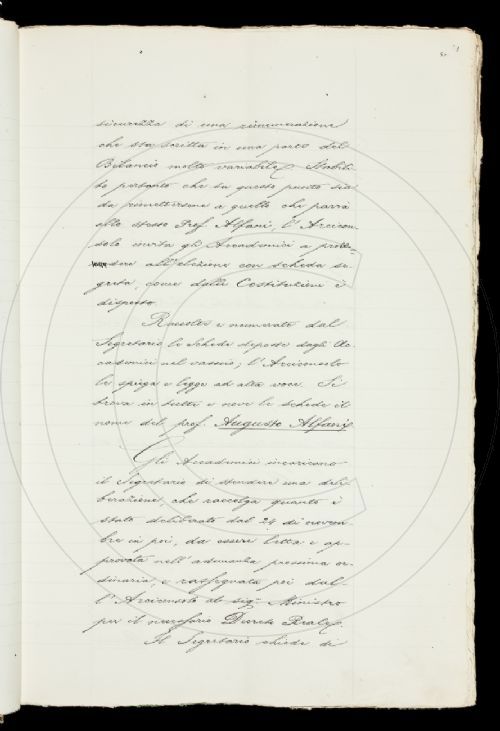 sicurezza di una rimunerazione
che sta scritta in una parte del
Bilancio molto variabile. Stabili-
to pertanto che su questo punto sia
da rimettersene a quello che parrà
allo stesso Prof. Alfani, l'Arcicon-
solo invita gli Accademici a proce-
dere all'elezione con scheda se-
greta, come dalle Costituzioni è
disposto.
Raccolte e numerate dal
Segretario le Schede deposte dagli Ac-
cademici nel vassoio, l'Arciconsolo
le spiega e legge ad alta voce. Si
trova in tutte e nove le schede il
nome del prof. Augusto Alfani.
Gli Accademici incaricano
il Segretario di stendere una deli-
berazione, che raccolga quanto è
stato deliberato dal 24 di novem-
bre in poi, da essere letta e ap-
provata nell'adunanza prossima or-
dinaria, e rassegnata poi dal
l'Arciconsolo al sig. Ministro
per il necessario Decreto Reale.
Il Segretario chiede di